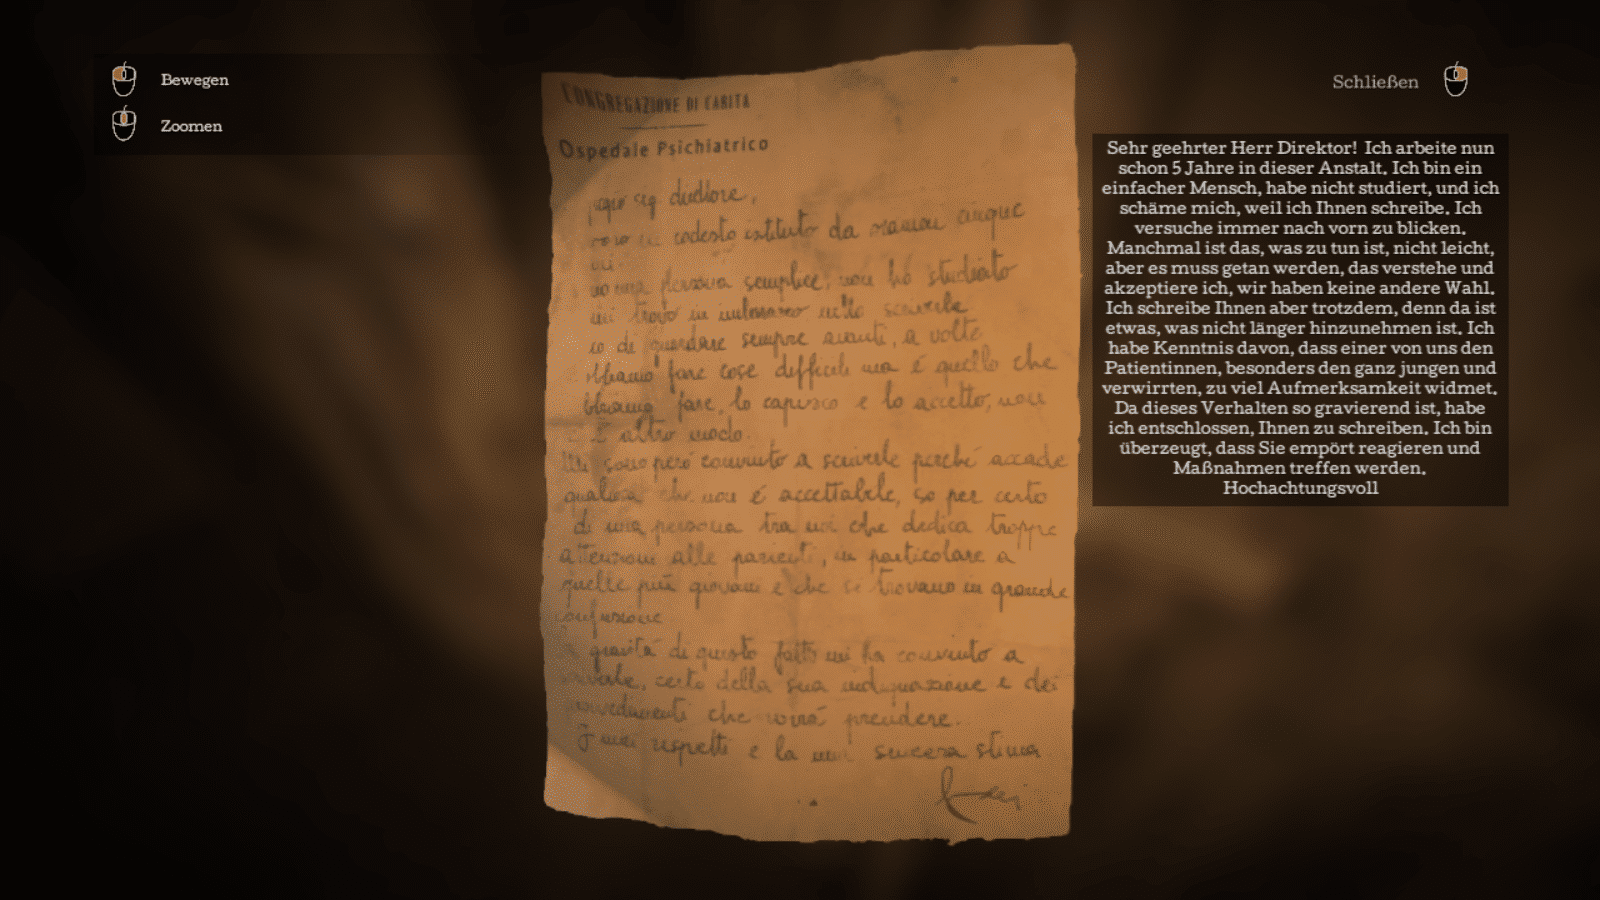 Bewegen
Zoomen
Schließen
CONGREGAZIONE DI CARITA
Ospedale Psichiatrico
direttore,
codesto istituto da oramai cinque
persona semplice, non ho studiato
mi trovo in imbarazzo nello scriverle
di guardare sempre avanti, a volte
fare cose difficili ma é quello che
fare, lo capisco e lo accetto, non
altro modo.
sono peró convinto a scriverle perché accade
qualcosa che non é accettabile, so per certo
di una persona tra noi che dedica troppe
attenzioni alle pazienti, in particolare a
quelle piú giovani e che si trovano in grande
confusione
gravitá di questo fatto mi ha convinto a
certo della sua indignazione e dei
provvedimenti che vorrá prendere.
I miei rispetti e la mia sincera stima
Sehr geehrter Herr Direktor! Ich arbeite nun
schon 5 Jahre in dieser Anstalt. Ich bin ein
einfacher Mensch, habe nicht studiert, und ich
schäme mich, weil ich Ihnen schreibe. Ich
versuche immer nach vorn zu blicken.
Manchmal ist das, was zu tun ist, nicht leicht,
aber es muss getan werden, das verstehe und
akzeptiere ich, wir haben keine andere Wahl.
Ich schreibe Ihnen aber trotzdem, denn da ist
etwas, was nicht länger hinzunehmen ist. Ich
habe Kenntnis davon, dass einer von uns den
Patientinnen, besonders den ganz jungen und
verwirrten, zu viel Aufmerksamkeit widmet.
Da dieses Verhalten so gravierend ist, habe
ich entschlossen, Ihnen zu schreiben. Ich bin
überzeugt, dass Sie empört reagieren und
Maßnahmen treffen werden.
Hochachtungsvoll